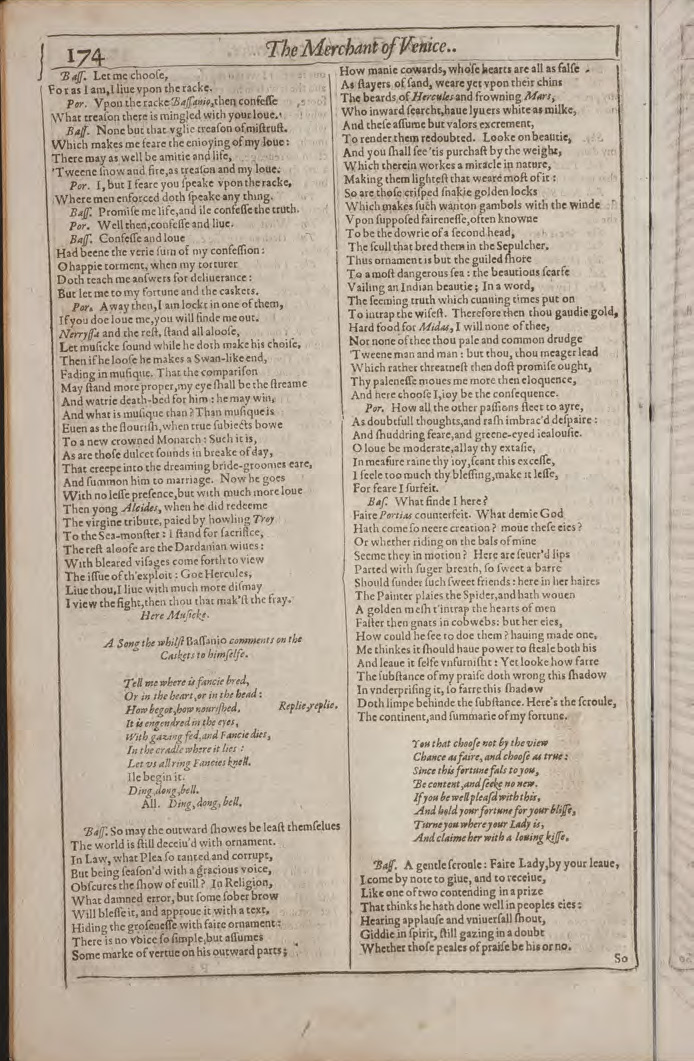 174
The Merchant of Venice..
Baſſ. Let me chooſe,
For as I am, I liue vpon the racke.
Por. Vpon the racke Baſſanio, then confeſſe
What treaſon there is mingled with your loue.
Baſſ. None but that vglie treaſon of miſtruſt.
Which makes me feare the enioying of my loue:
There may as well be amitie and life,
'Tweene ſnow and fire, as treaſon and my loue.
Por. I, but I feare you ſpeake vpon the racke,
Where men enforced doth ſpeake any thing.
Baſſ. Promiſe me life, and ile confeſſe the truth.
Por. Well then, confeſſe and liue.
Baſſ. Confeſſe and loue
Had beene the verie ſum of my confeſſion:
O happie torment, when my torturer
Doth teach me anſwers for deliuerance:
But let me to my fortune and the caskets.
Por. Away then, I am lockt in one of them,
If you doe loue me, you will finde me out.
Nerryſſa and the reſt, ſtand all alooſe,
Let muſicke ſound while he doth make his choiſe,
Then if he looſe he makes a Swan-like end,
Fading in muſique. That the compariſon
May ſtand more proper, my eye ſhall be the ſtreame
And watrie death-bed for him: he may win,
And what is muſique than? Than muſique is
Euen as the flouriſh, when true ſubiects bowe
To a new crowned Monarch: Such it is,
As are thoſe dulcet ſounds in breake of day,
That creepe into the dreaming bride-groomes eare,
And ſummon him to marriage. Now he goes
With no leſſe preſence, but with much more loue
Then yong Alcides, when he did redeeme
The virgine tribute, paied by howling Troy
To the Sea-monſter: I ſtand for ſacrifice,
The reſt alooſe are the Dardanian wiues:
With bleared viſages come forth to view
The iſſue of th'exploit: Goe Hercules,
Liue thou, I liue with much more diſmay
I view the fight, then thou that mak'ſt the fray.
Here Muſicke.
A Song the whilſt Baſſanio comments on the
Caskets to himſelfe.
Tell me where is fancie bred,
Or in the heart, or in the head:
How begot, how nouriſhed. Replie, replie.
It is engendred in the eyes,
With gazing fed, and Fancie dies,
In the cradle where it lies:
Let vs all ring Fancies knell.
Ile begin it.
Ding, dong, bell.
All. Ding, dong, bell.
Baſſ. So may the outward ſhowes be leaſt themſelues
The world is ſtill deceiu'd with ornament.
In Law, what Plea ſo tanted and corrupt,
But being ſeaſon'd with a gracious voice,
Obſcures the ſhow of euill? In Religion,
What damned error, but ſome ſober brow
Will bleſſe it, and approue it with a text,
Hiding the groſeneſſe with faire ornament:
There is no voice ſo ſimple, but aſſumes
Some marke of vertue on his outward parts;
How manie cowards, whoſe hearts are all as falſe
As ſtayers of ſand, weare yet vpon their chins
The beards of Hercules and frowning Mars,
Who inward ſearcht, haue lyuers white as milke,
And theſe aſſume but valors excrement,
To render them redoubted. Looke on beautie,
And you ſhall ſee 'tis purchaſt by the weight,
Which therein workes a miracle in nature,
Making them lighteſt that weare moſt of it:
So are thoſe criſped ſnakie golden locks
Which makes ſuch wanton gambols with the winde
Vpon ſuppoſed faireneſſe, often knowne
To be the dowrie of a ſecond head,
The ſcull that bred them in the Sepulcher.
Thus ornament is but the guiled ſhore
To a moſt dangerous ſea: the beautious ſcarfe
Vailing an Indian beautie; In a word,
The ſeeming truth which cunning times put on
To intrap the wiſeſt. Therefore then thou gaudie gold,
Hard food for Midas, I will none of thee,
Nor none of thee thou pale and common drudge
'Tweene man and man: but thou, thou meager lead
Which rather threatneſt then doſt promiſe ought,
Thy paleneſſe moues me more then eloquence,
And here chooſe I, ioy be the conſequence.
Por. How all the other paſſions fleet to ayre,
As doubtfull thoughts, and raſh imbrac'd deſpaire:
And ſhuddring feare, and greene-eyed iealouſie.
O loue be moderate, allay thy extaſie,
In meaſure raine thy ioy, ſcant this exceſſe,
I feele too much thy bleſſing, make it leſſe,
For feare I ſurfeit.
Baſ. What finde I here?
Faire Portias counterfeit. What demie God
Hath come ſo neere creation? moue theſe eies?
Or whether riding on the bals of mine
Seeme they in motion? Here are ſeuer'd lips
Parted with ſuger breath, ſo ſweet a barre
Should ſunder ſuch ſweet friends: here in her haires
The Painter plaies the Spider, and hath wouen
A golden meſh t'intrap the hearts of men
Faſter then gnats in cobwebs: but her eies,
How could he ſee to doe them? hauing made one,
Me thinkes it ſhould haue power to ſteale both his
And leaue it ſelfe vnfurniſht: Yet looke how farre
The ſubſtance of my praiſe doth wrong this ſhadow
In vnderpriſing it, ſo farre this ſhadow
Doth limpe behinde the ſubſtance. Here's the ſcroule,
The continent, and ſummarie of my fortune.
You that chooſe not by the view
Chance as faire, and chooſe as true:
Since this fortune fals to you,
Be content, and ſeeke no new.
If you be well pleaſd with this,
And hold your fortune for your bliſſe,
Turne you where your Lady is,
And claime her with a louing kiſſe.
Baſſ. A gentle ſcroule: Faire Lady, by your leaue,
I come by note to giue, and to receiue,
Like one of two contending in a prize
That thinks he hath done well in peoples eies:
Hearing applauſe and vniuerſall ſhout,
Giddie in ſpirit, ſtill gazing in a doubt
Whether thoſe peales of praiſe be his or no.
So